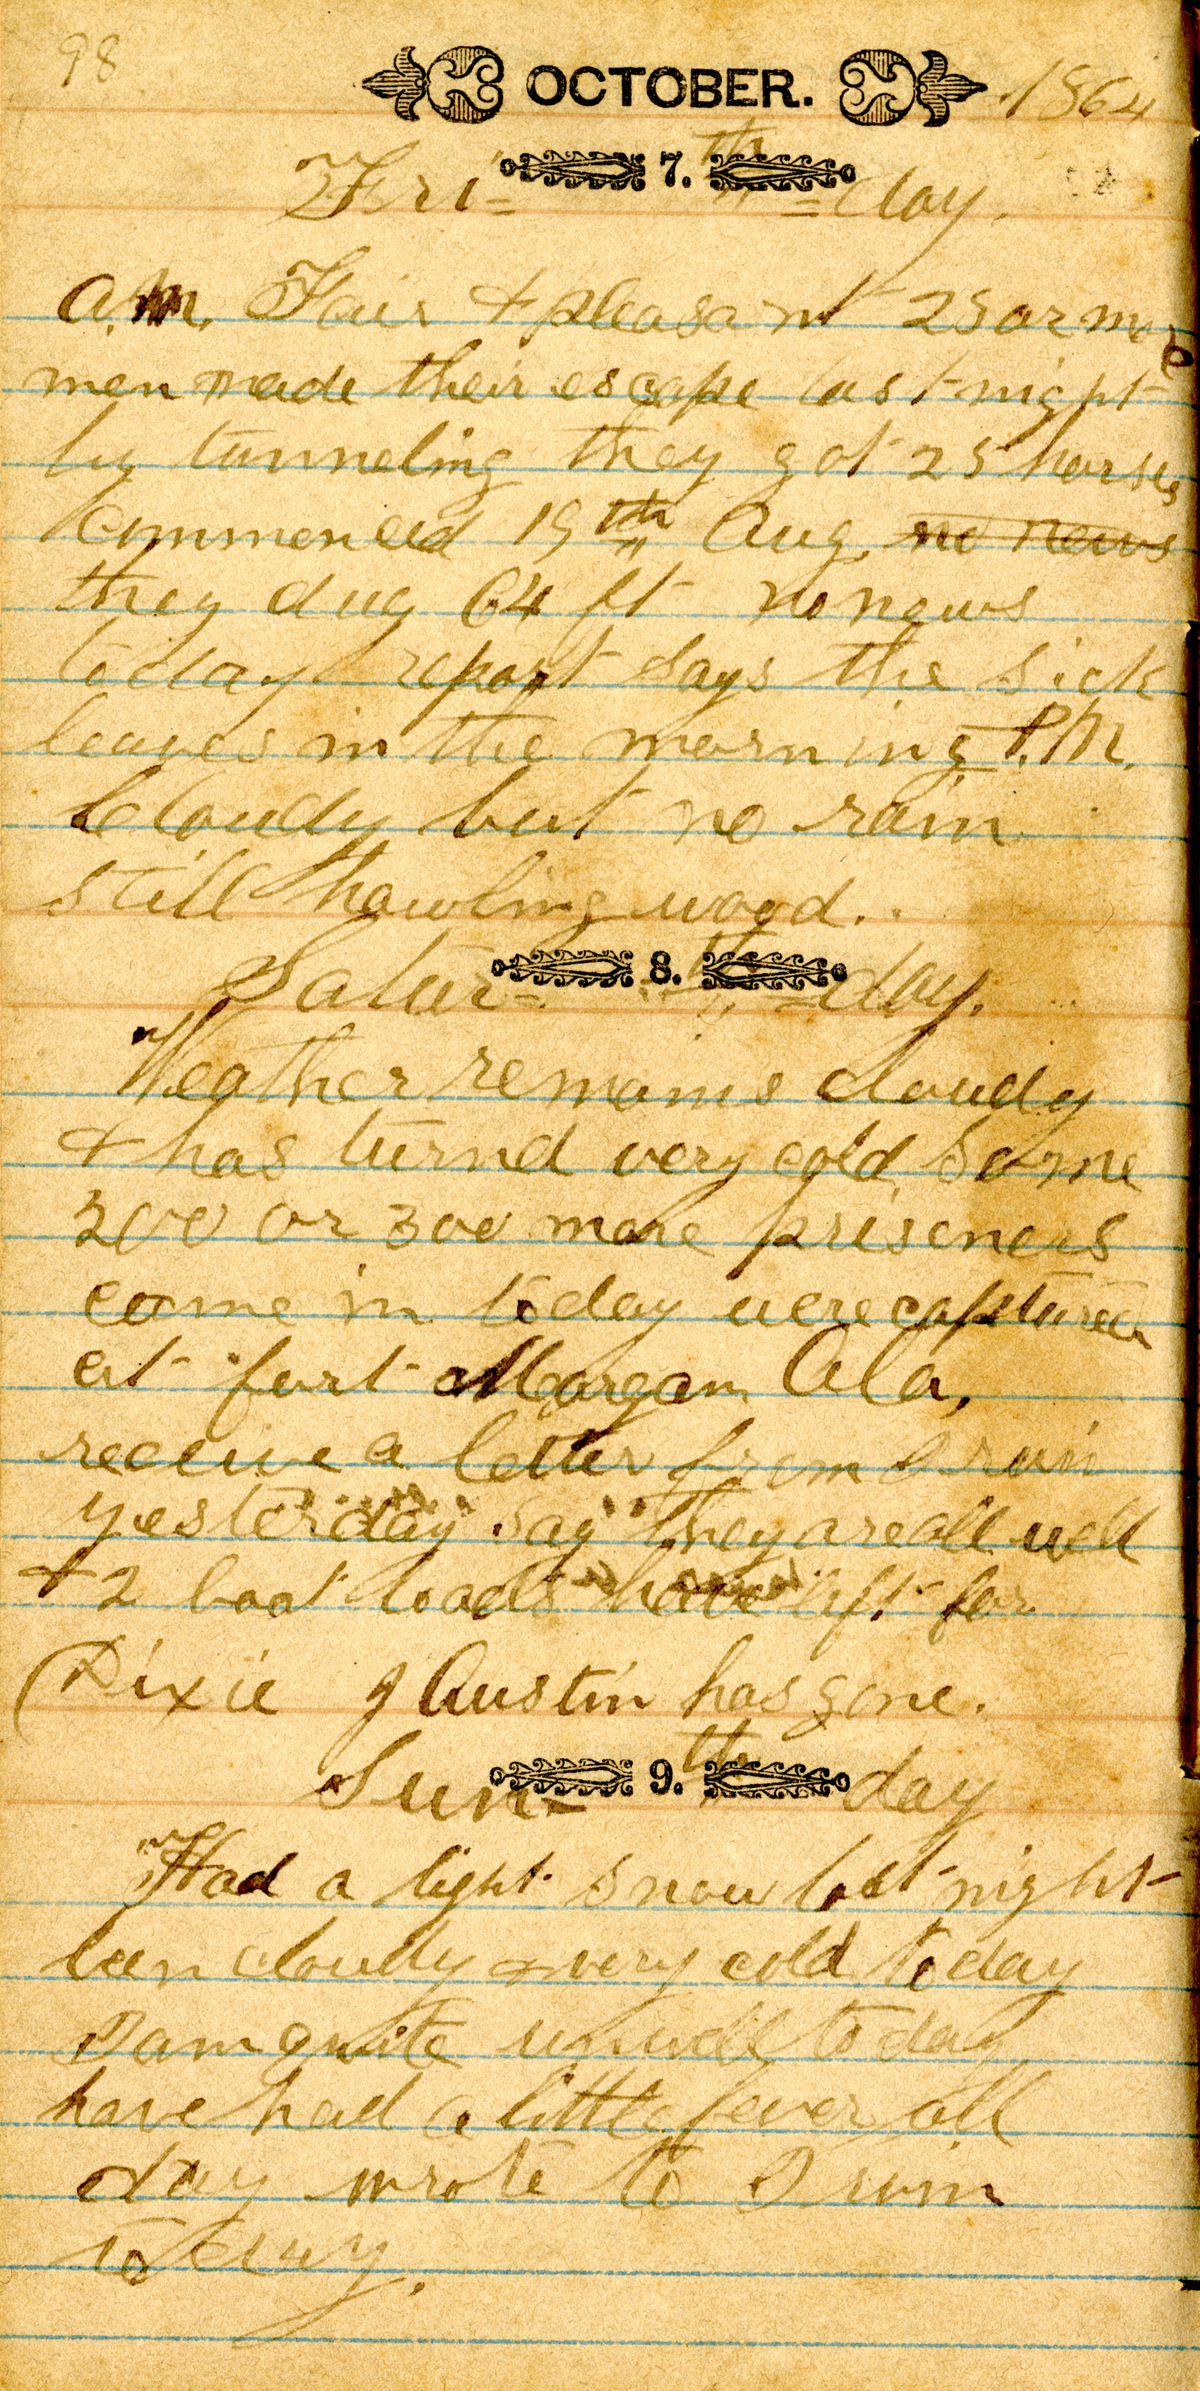 98
OCTOBER. 1864
Fri= 7.th =day.
a.m. Fair & pleasant 25 or more
men made their escape last night
by tunneling they got 25 horses
Commenced 19th Aug. no news
they dug 64 ft no news
today report says the sick
leaves in the morning P.M.
Cloudy but no rain
still hawling wood.
Satur= 8.th =day.
Weather remains cloudy
& has turnd very cold, Some
200 or 300 more prisoners
come in today were captured
at fort Morgan Ala,
receive a letter from Irvin
yesterday say they are all well
& 2 boat loads have lift for
Dixie J Austin has gone.
Sun= 9.th day
Had a light snow last night
been cloudy & very cold today
I am quite unwell today
have had a little fever all
day wrote to Irvin
today.